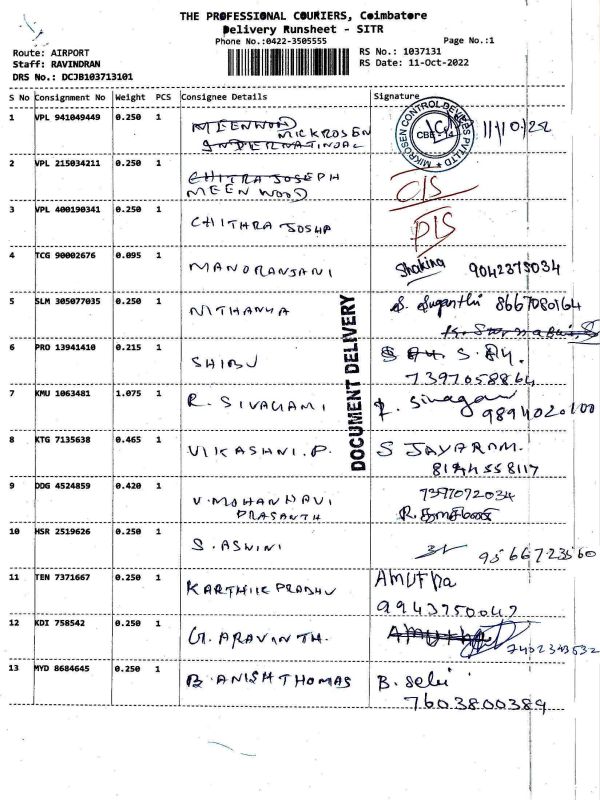 THE PROFESSIONAL COURIERS, Coimbatore
Delivery Runsheet - SITR
Phone No.:0422-3505555
Page No.:1
Route: AIRPORT
Staff: RAVINDRAN
DRS No.: DCJB103713101
RS No.: 1037131
RS Date: 11-Oct-2022
S No Consignment No Weight PCS Consignee Details Signature
1 VPL 941049449 0.250 1 MEENWOOD MICKROSEN
INTERNATINOAL
MIKROSEN CONTROL DEVICES PVT LTD
CBE - 14
11/10/22
2 VPL 215034211 0.250 1 CHITRA JOSEPH
MEENWOOD
CIS
3 VPL 400190341 0.250 1 CHITHRA JOSHA
DIS
4 TCG 90002676 0.095 1 MANORANJANI Shakina 9042375034
5 SLM 305077035 0.250 1 NITHANYA S. Suganthi 8667080164
6 PRO 13941410 0.215 1 SHIBU
7397058864
7 KMU 1063481 1.075 1 R. SIVAGAMI R. Sivagami
9894020100
8 KTG 7135638 0.465 1 VIKASHNI.P. S JAYARAM.
8144558117
9 DDG 4524859 0.420 1 V.MOHANDAVI 7397072034
PRASANTH
10 HSR 2519626 0.250 1 S. ASWINI
9566723560
11 TEN 7371667 0.250 1 KARTHIK PRABHU Amutha
9943750047
12 KDI 758542 0.250 1 G. ARAVINTH. Amutha
7402343532
13 MYD 8684645 0.250 1 B. ANISH THOMAS B. Selvi
7603800389
DOCUMENT DELIVERY